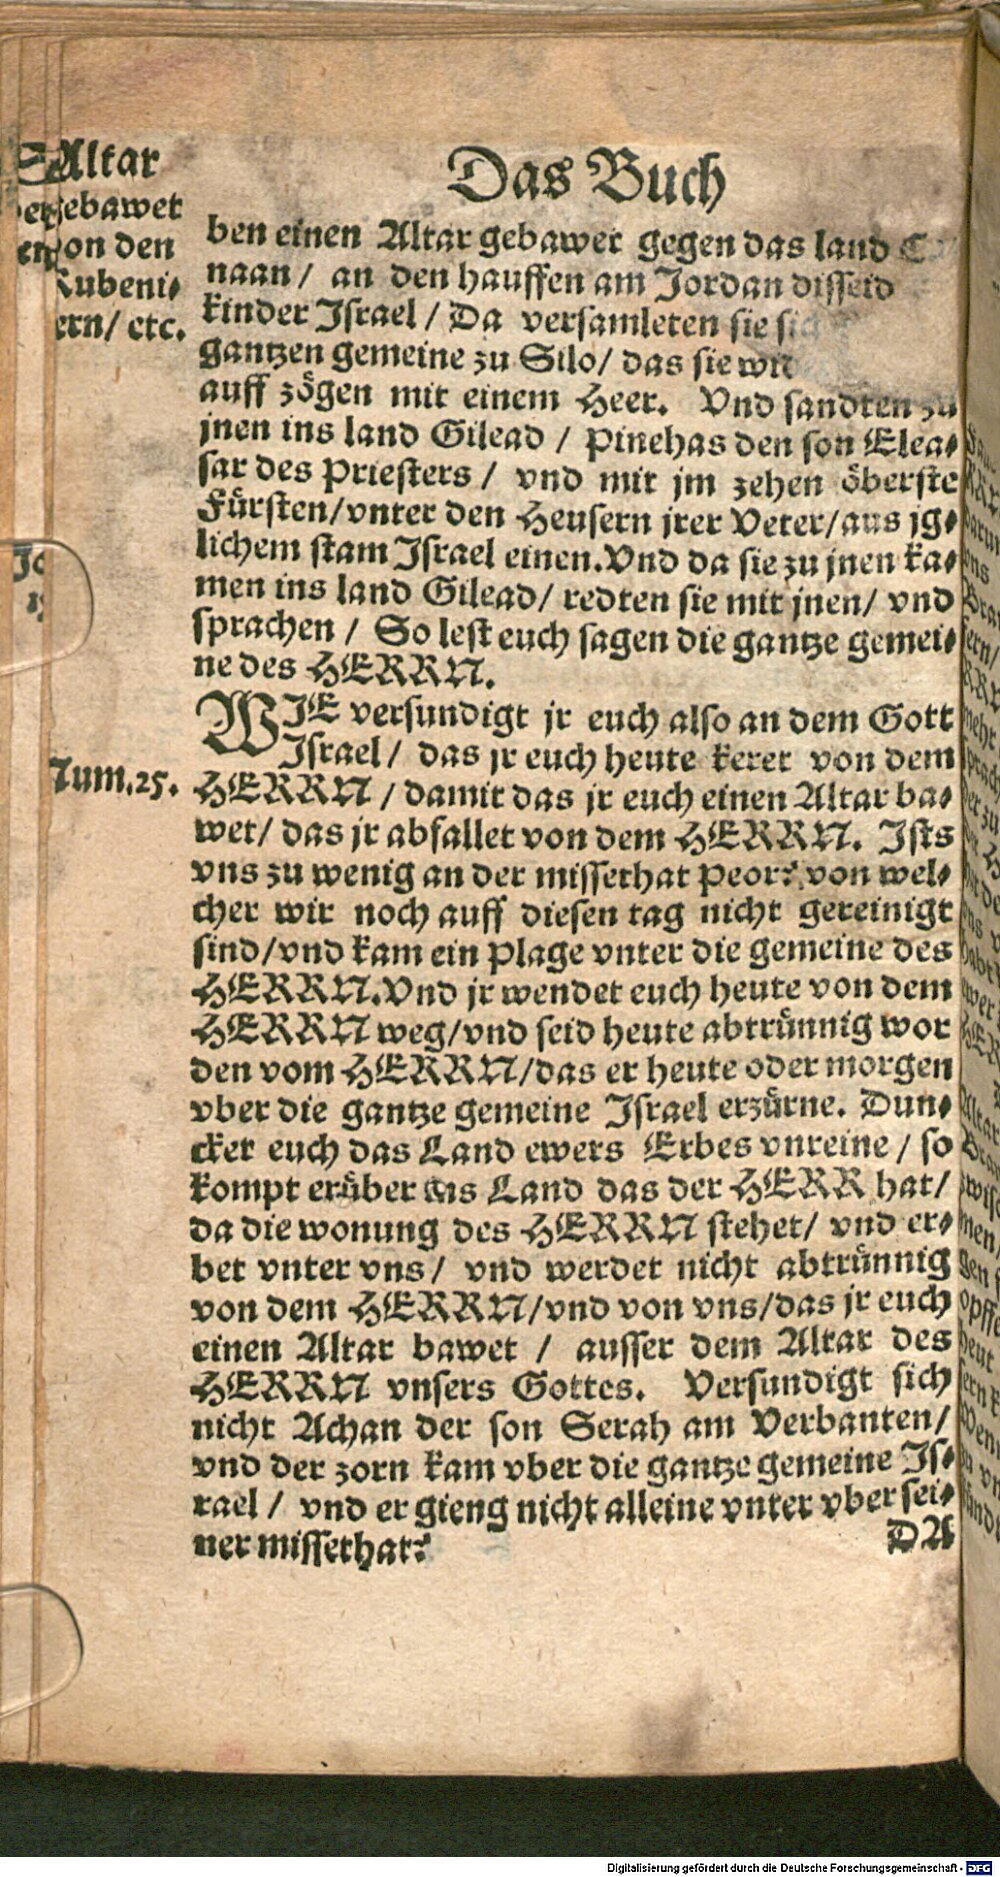 Das Buch
Altar
gebawet
von den
Rubeni⸗
ern/ etc.
ben einen Altar gebawet gegen das land
naan / an den hauffen am Jordan disseid
kinder Israel / Da versamleten sie
gantzen gemeine zu Silo/ das sie
auff zögen mit einem Heer. Vnd sandten zu
jnen ins land Gilead / Pinehas den son Elea⸗
sar des Priesters / vnd mit jm zehen öberste
Fürsten/vnter den Heusern jrer Veter/aus jg⸗
lichem stam Israel einen. Vnd da sie zu jnen ka⸗
men ins land Gilead/ redten sie mit jnen/ vnd
sprachen / So lest euch sagen die gantze gemei⸗
ne des HERRN.
WIE versundigt jr euch also an dem Gott
Israel/ das jr euch heute keret von dem
Num.25.
HERRN / damit das jr euch einen Altar ba⸗
wet/ das jr abfallet von dem HERRN. Ists
vns zu wenig an der missethat Peor? von wel⸗
cher wir noch auff diesen tag nicht gereinigt
sind/vnd kam ein Plage vnter die gemeine des
HERRN. Vnd jr wendet euch heute von dem
HERRN weg/vnd seid heute abtrünnig wor
den vom HERRN/das er heute oder morgen
vber die gantze gemeine Israel erzürne. Dun⸗
cket euch das Land ewers Erbes vnreine / so
kompt erüber ins Land das der HERR hat/
da die wonung des HERRN stehet/ vnd er⸗
bet vnter vns/ vnd werdet nicht abtrünnig
von dem HERRN/vnd von vns/das jr euch
einen Altar bawet / ausser dem Altar des
HERRN vnsers Gottes. Versundigt sich
nicht Achan der son Serah am Verbanten/
vnd der zorn kam vber die gantze gemeine Is⸗
rael / vnd er gieng nicht alleine vnter vber sei⸗
ner missethat?
DA
Digitalisierung gefördert durch die Deutsche Forschungsgemeinschaft - DFG